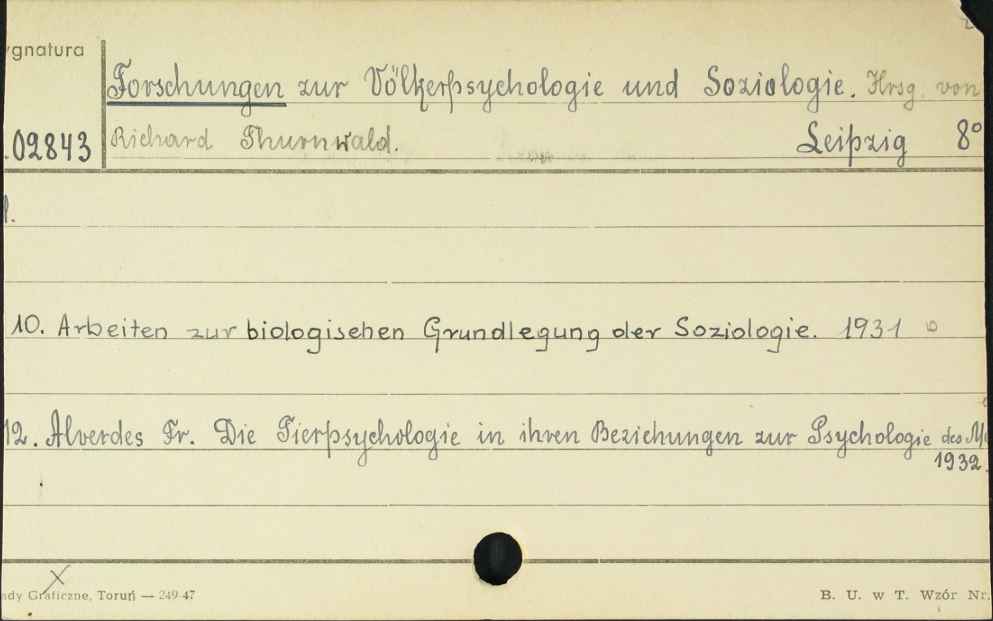 ygnatura
Forschungen zur Völkerpsychologie und Soziologie. Hrsg. von
.02843 Richard Thurnwald. Leipzig 8°
10. Arbeiten zur biologischen Grundlegung der Soziologie. 1931
12. Alverdes Fr. Die Tierpsychologie in ihren Beziehungen zur Psychologie des
1932.
ady Graficzne, Toruń — 249-47 B. U. w T. Wzór Nr.